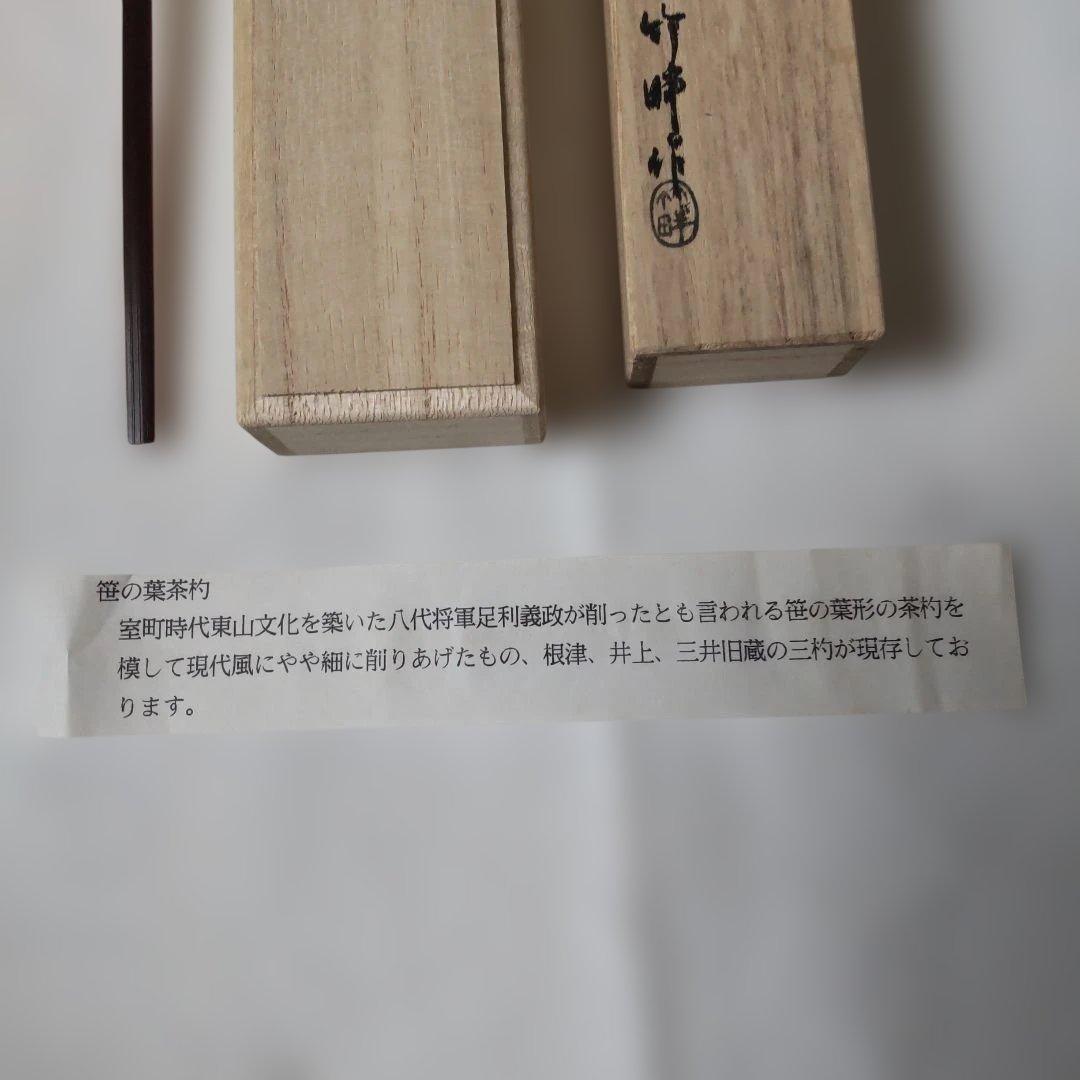 竹峰作
笹の葉茶杓
室町時代東山文化を築いた八代将軍足利義政が削ったとも言われる笹の葉形の茶杓を
模して現代風にやや細に削りあげたもの、根津、井上、三井旧蔵の三杓が現存してお
ります。